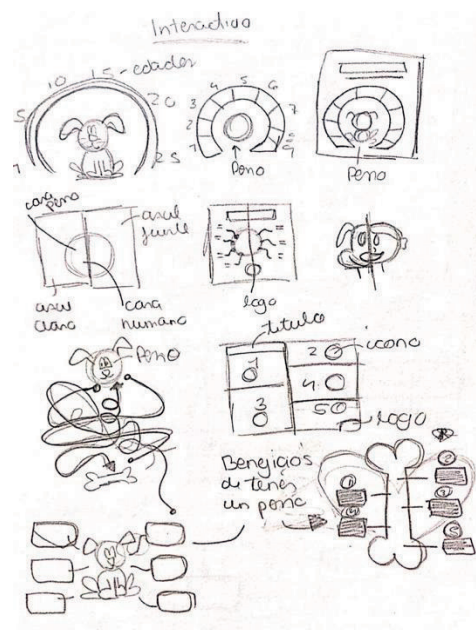 Interactivo
5 10 15 - edades
20
25
1
1 2 3 4 5 6 7 8 9
Perro
Perro
cara perro
azul fuerte
azul claro
cara humano
logo
Perro
titulo
icono
1 2
3 4
5
logo
Beneficios
de tener
un perro